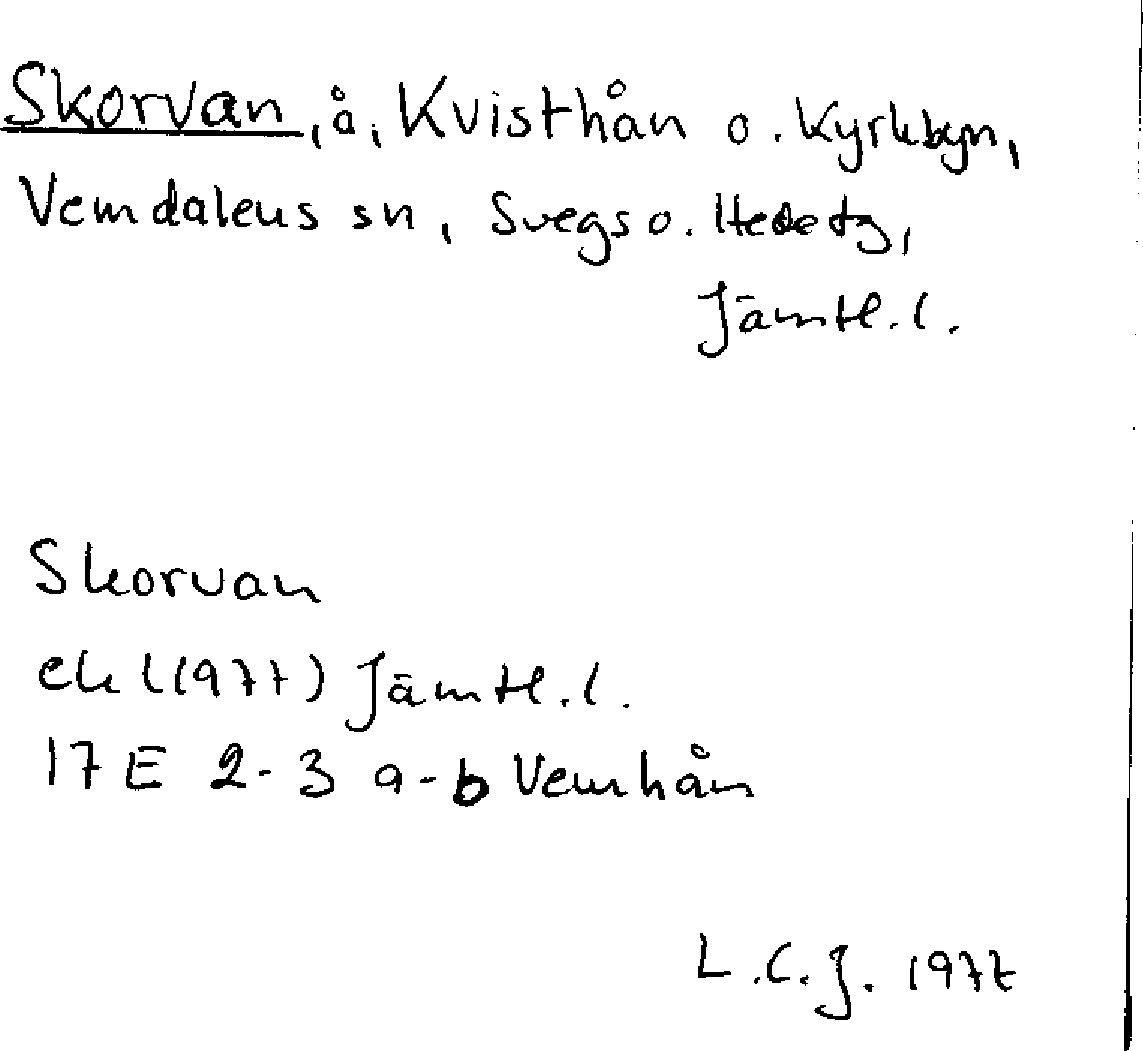 Skorvan, å, Kvisthån o. Kyrkbyn,
Vemdalens sn, Svegs o. Hede tg,
Jämtl. l.
Skorvan
ek l (1977) Jämtl. l.
17 E 2-3 a-b Vemhån
L.C.J. 1977